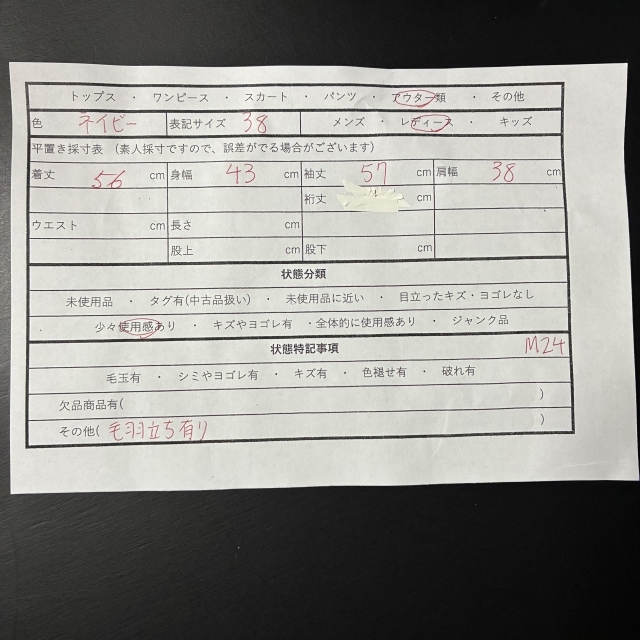 トップス ・ ワンピース ・ スカート ・ パンツ ・ アウター類 ・ その他
色 ネイビー 表記サイズ 38 メンズ ・ レディース ・ キッズ
平置き採寸表 （素人採寸ですので、誤差がでる場合がございます）
着丈 56 cm 身幅 43 cm 袖丈 57 cm 肩幅 38 cm
裄丈 cm
ウエスト cm 長さ cm
股上 cm 股下 cm
状態分類
未使用品 ・ タグ有(中古品扱い)・ 未使用品に近い ・ 目立ったキズ・ヨゴレなし
少々使用感あり ・ キズやヨゴレ有 ・全体的に使用感あり ・ ジャンク品
状態特記事項 M24
毛玉有 ・ シミやヨゴレ有 ・ キズ有 ・ 色褪せ有 ・ 破れ有
欠品商品有( )
その他( 毛羽立ち有り )